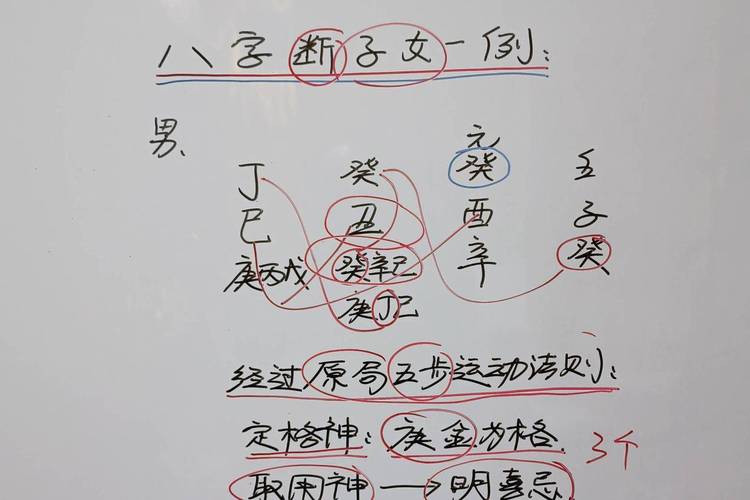 八字断子女一例:
男、
元
丁 癸 癸 壬
巳 丑 酉 子
庚丙戊 癸辛己 辛 癸
庚丁己
经过原局五步运动法则:
定格神:庚金为格 3个
取用神→明喜忌